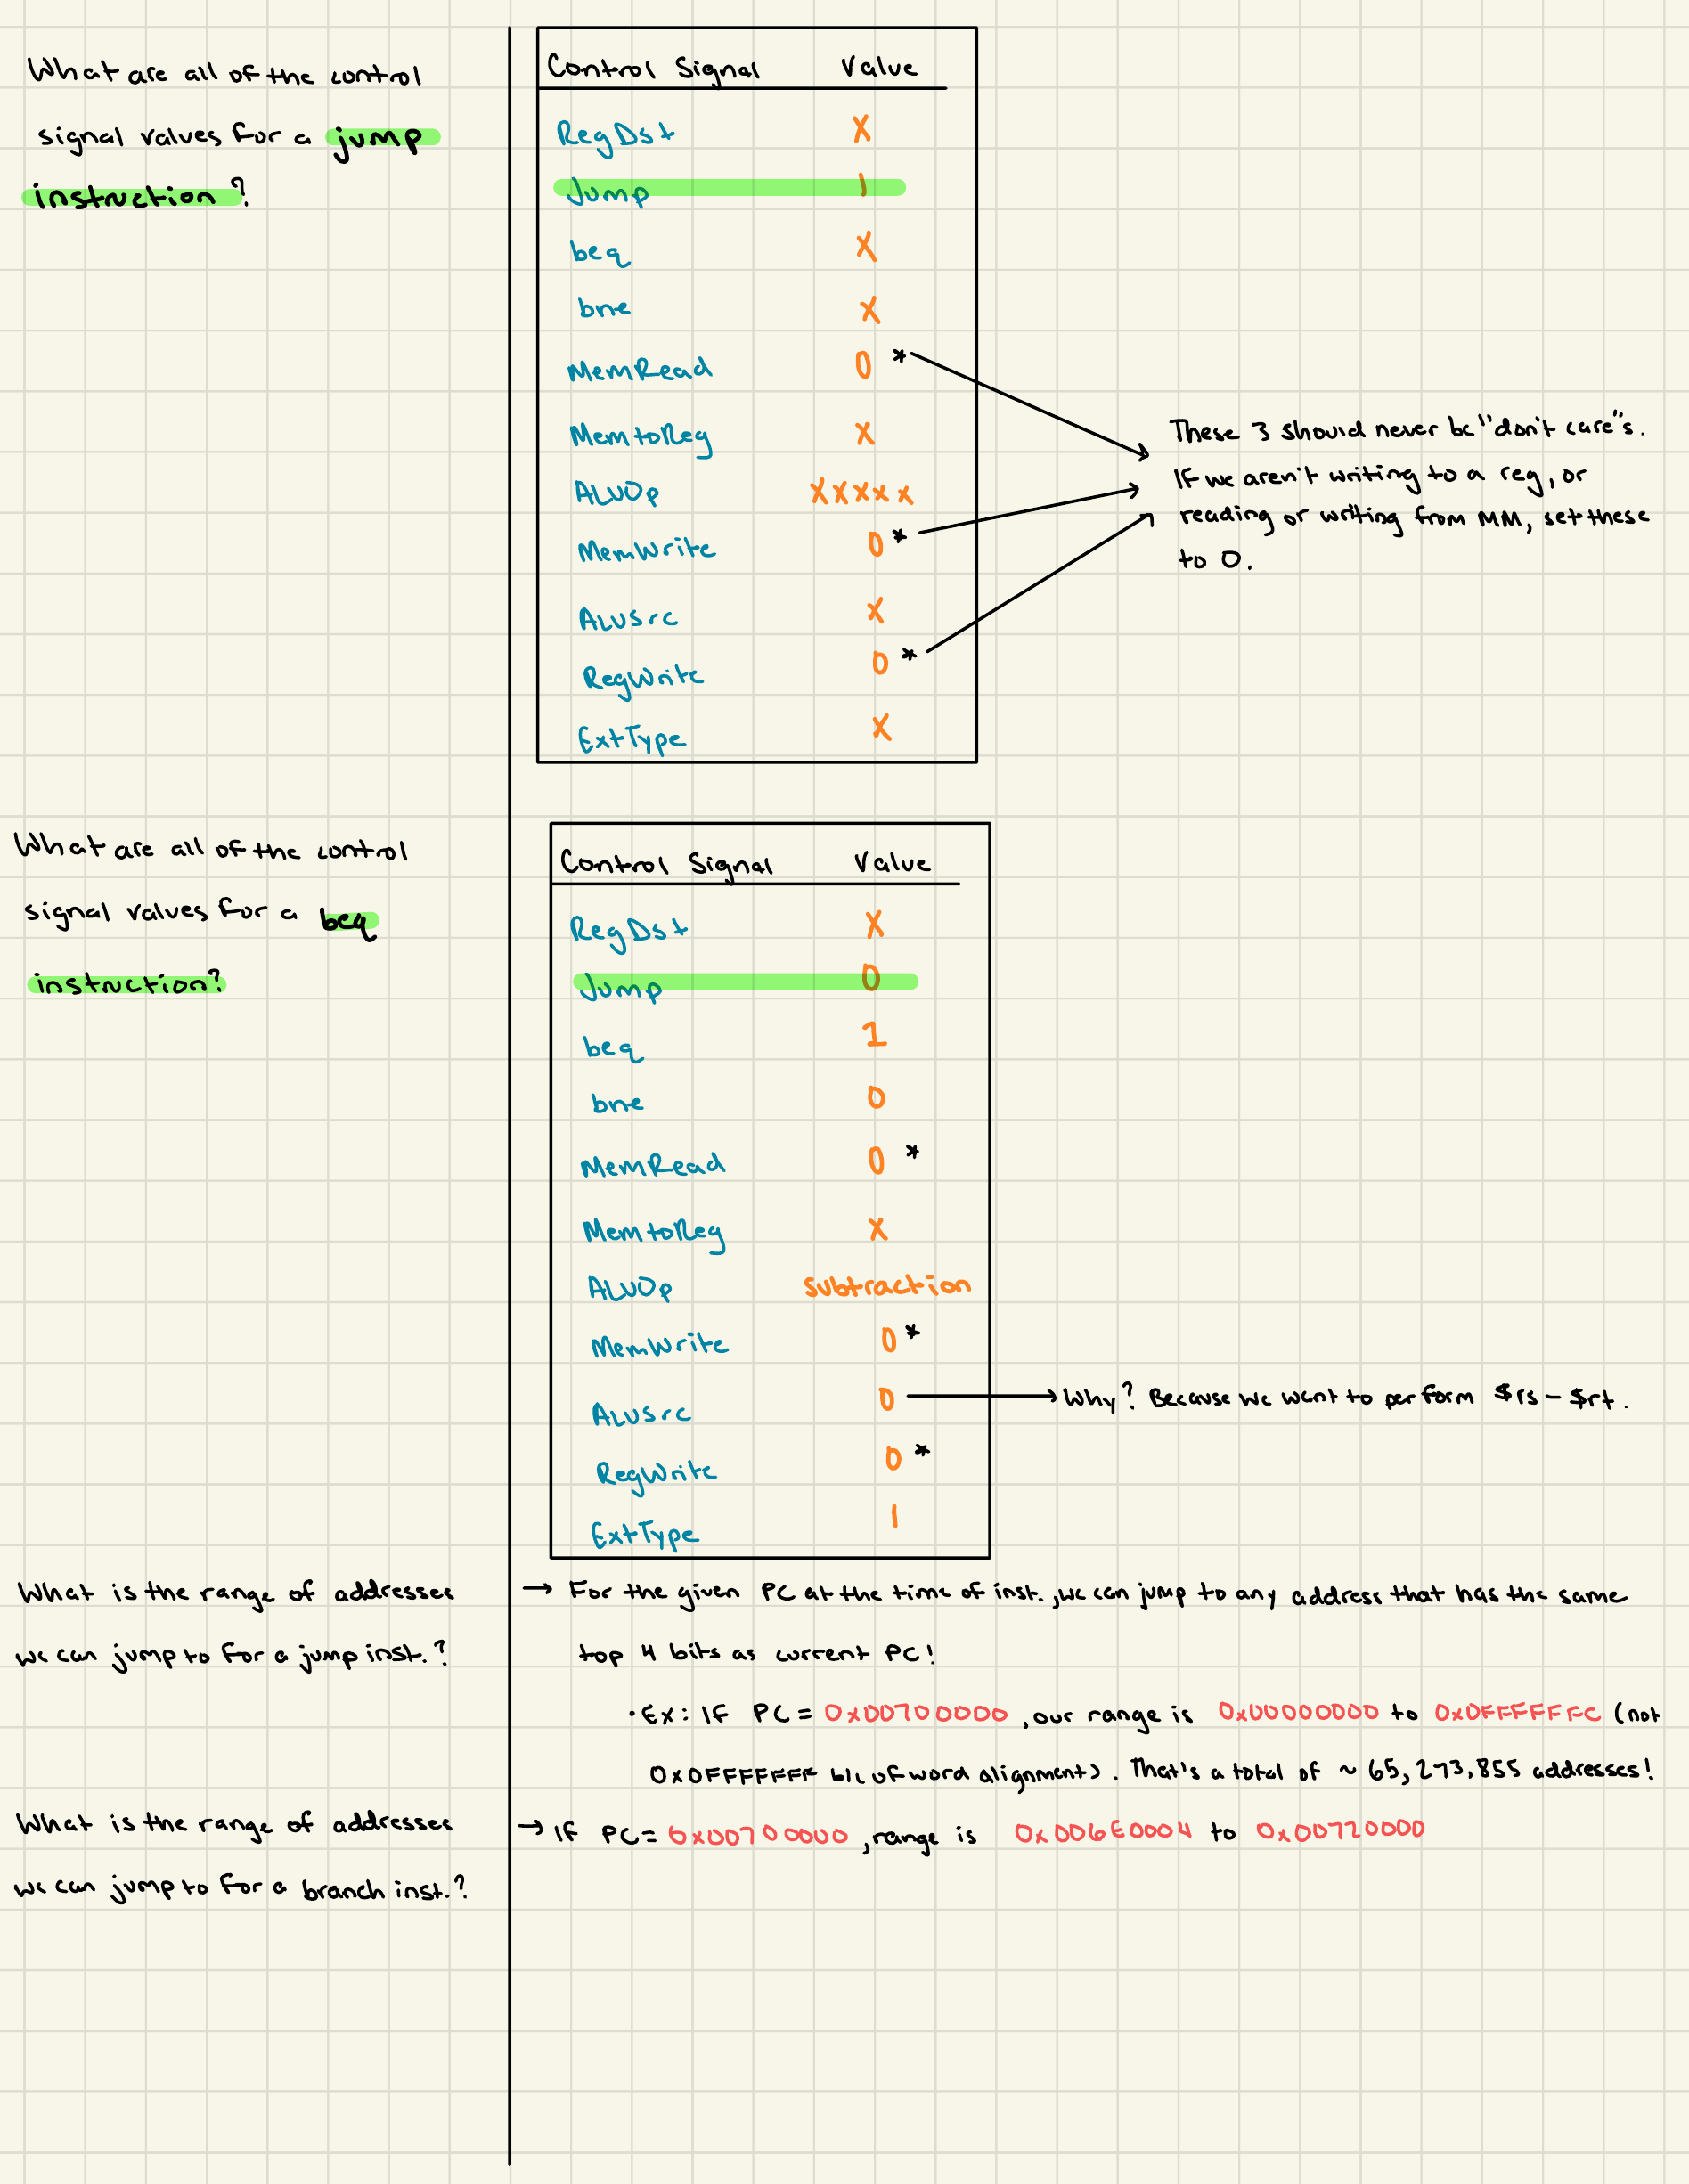 What are all of the control
signal values for a jump
instruction?
Control Signal Value
RegDst X
Jump 1
beq X
bne X
MemRead 0 *
MemtoReg X
ALUOp XXXXX
MemWrite 0 *
ALUSrc X
RegWrite 0 *
ExtType X
These 3 should never be "don't care"s.
If we aren't writing to a reg, or
reading or writing from MM, set these
to 0.
What are all of the control
signal values for a beq
instruction?
Control Signal Value
RegDst X
Jump 0
beq 1
bne 0
MemRead 0 *
MemtoReg X
ALUOp subtraction
MemWrite 0 *
ALUSrc 0 → Why? Because we want to perform $rs - $rt.
RegWrite 0 *
ExtType 1
What is the range of addresses
we can jump to for a jump inst.?
→ For the given PC at the time of inst., we can jump to any address that has the same
top 4 bits as current PC!
• Ex: If PC = 0x00700000, our range is 0x00000000 to 0x0FFFFFFC (not
0x0FFFFFFF b/c of word alignment). That's a total of ~ 65,273,855 addresses!
What is the range of addresses
we can jump to for a branch inst.?
→ If PC = 0x00700000, range is 0x006E0004 to 0x00720000